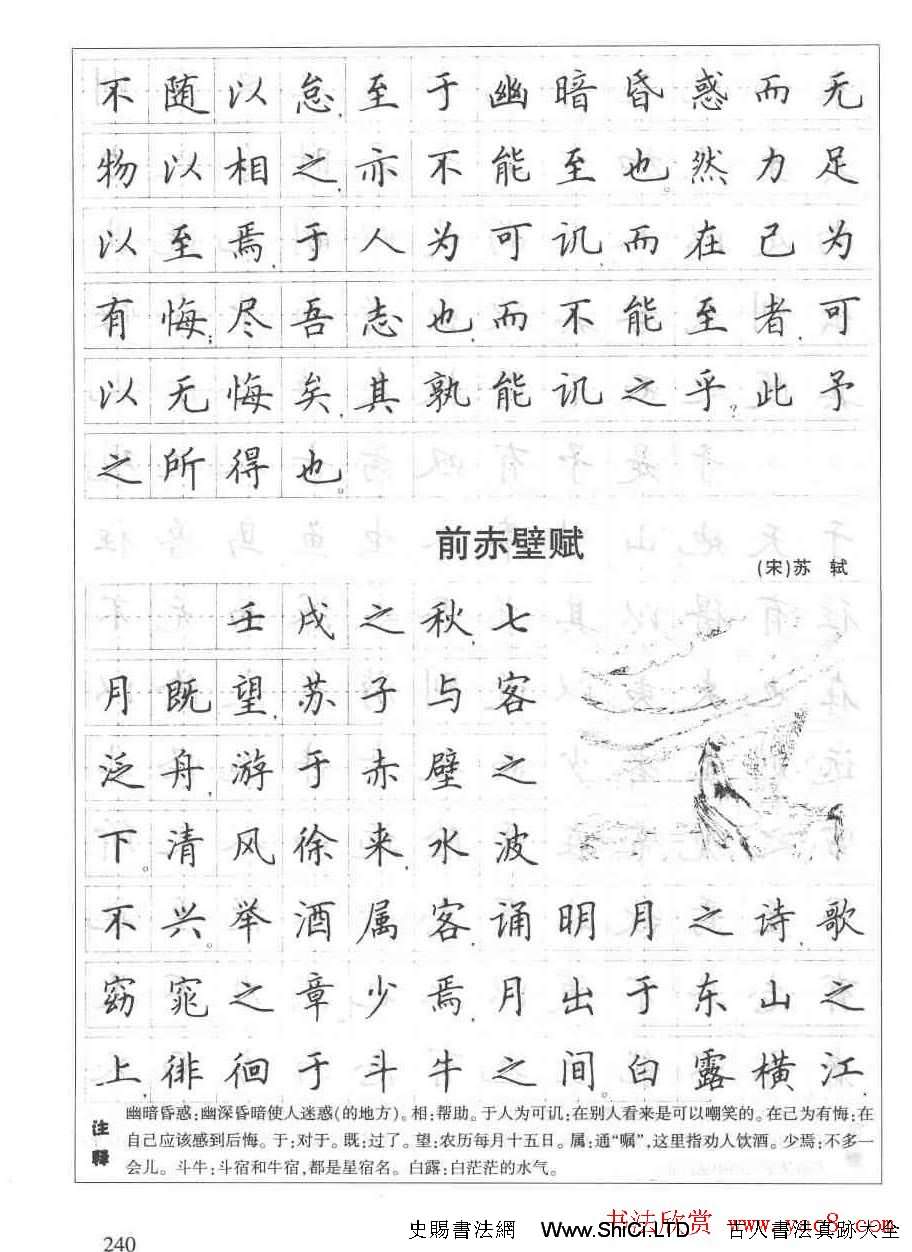 不随以怠，至于幽暗昏惑而无
物以相之，亦不能至也。然力足
以至焉，于人为可讥，而在己为
有悔；尽吾志也，而不能至者，可
以无悔矣，其孰能讥之乎？此予
之所得也。
前赤壁赋
(宋)苏 轼
壬戌之秋，七
月既望，苏子与客
泛舟，游于赤壁之
下。清风徐来，水波
不兴。举酒属客，诵明月之诗，歌
窈窕之章。少焉，月出于东山之
上，徘徊于斗牛之间。白露横江，
注释
幽暗昏惑：幽深昏暗使人迷惑(的地方)。相：帮助。于人为可讥：在别人看来是可以嘲笑的。在己为有悔：在
自己应该感到后悔。于：对于。既：过了。望：农历每月十五日。属：通“嘱”，这里指劝人饮酒。少焉：不多一
会儿。斗牛：斗宿和牛宿，都是星宿名。白露：白茫茫的水气。
书法欣赏
史賜書法網 Www.ShiCi.LTD 古人書法真跡大全
240